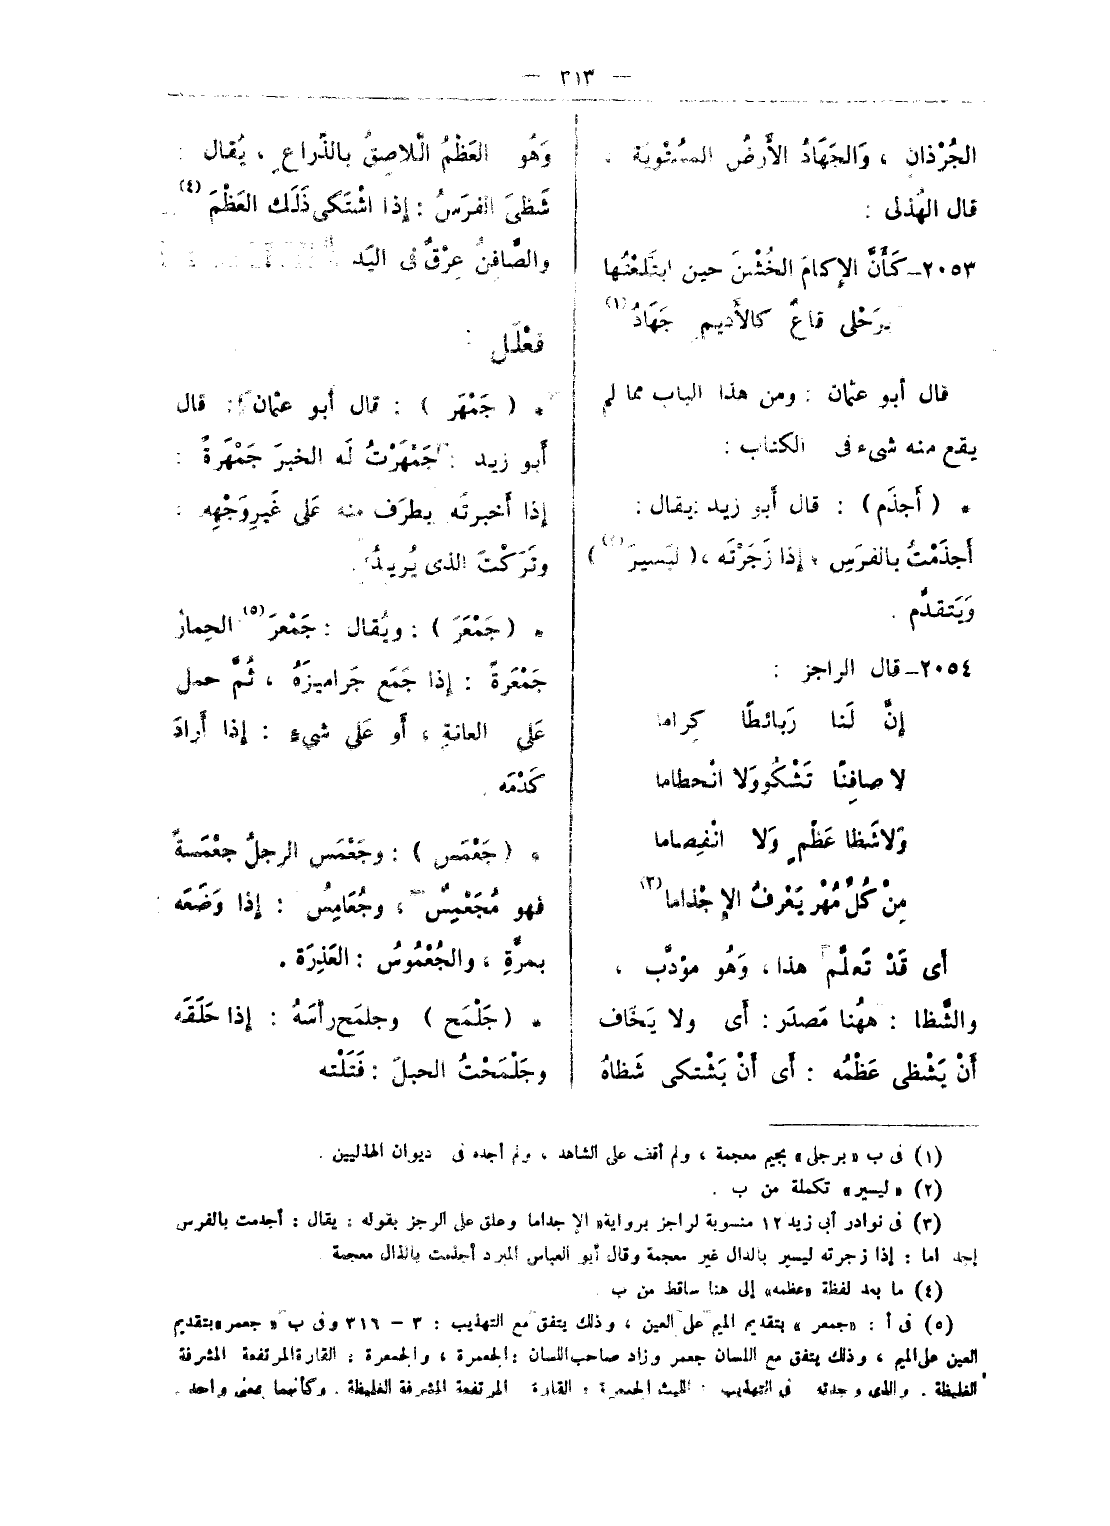 — ٣١٣ —
الجُرْذانِ ، وَالجَهَادُ الأَرضُ المستوِيَة .
قال الهُذلى :
٢٠٥٣ـ كَأَنَّ الإِكامَ الخُشْنَ حين ابتَلَعْنُها
بِرَحْلى قاعٌ كالأَديم جَهَادُ (١)
قال أبو عثمان : ومن هذا الباب مما لم
يقع منه شىء فى الكتاب :
* ( أَجذَم ) : قال أَبو زيد : يقال :
أَجذَمْتُ بالفرَسِ ، إِذا زَجَرْتَه ، ( ليَسيرَ (٢) )
وَيَتقدَّم .
٢٠٥٤ـ قال الراجز :
إِنَّ لَنا رَبائطًا كِراما
لا صافِنًا تَشْكُو وَلا انْحطاما
وَلا شَظا عَظْمٍ وَلا انْفِصاما
مِنْ كُلِّ مُهْرٍ يَعْرِفُ الإِجْذاما (٣)
أى قَدْ تَعلَّم هذا ، وَهُو مؤدَّب ،
والشَّظا : ههُنا مَصدَر : أَى ولا يَخَاف
أَنْ يَشْظى عَظْمُه : أَى أَنْ يَشْتكى شَظاهُ
وَهُو العَظْمُ الَّلاصِقُ بالذِّراعِ ، يُقال :
شَظىَ الفرَسُ : إِذا اشْتَكى ذَلَك العَظْمَ (٤)
والصَّافِنُ عِرْقٌ فى اليَد
فَعْلَل :
* ( جَمْهَر ) : قال أبو عثمان : قال
أَبو زيد : جَمْهَرْتُ لَه الخبرَ جَمْهَرةً :
إِذا أَخبرتَه بطرَف منه عَلى غَيرِ وَجْهِه :
وتَرَكْتَ الذى يُرِيدُ .
* ( جَمْعَرَ ) : ويُقال : جَمْعرَ (٥) الحِمارُ
جَمْعَرةً : إِذا جَمَع جَراميزَهُ ، ثُمَّ حمل
عَلى العانةِ ، أَو عَلى شىءٍ : إِذا أَرادَ
كَدْمَه .
* ( جَعْمَس ) : وجَعْمَس الرجلُ جعْمَسةً
فهو مُجَعْمِسٌ ، وجُعَامِسٌ : إِذا وَضَعَه
بمرَّةٍ ، والجُعْمُوسُ : العَذِرَة .
* ( جَلْمَح ) وجلمَح رأسَهُ : إِذا حَلَقَه
وجَلْمَحْتُ الحبلَ : فَتَلْته
(١) فى ب « برجلى » بجيم معجمة ، ولم أقف على الشاهد ، ولم أجده فى ديوان الهذليين .
(٢) « ليسير » تكملة من ب .
(٣) فى نوادر أبى زيد ١٢ منسوبة لراجز برواية « الإجداما وعلق على الرجز بقوله : يقال : أجدمت بالفرس
إجد اما : إذا زجرته ليسير بالدال غير معجمة وقال أبو العباس المبرد أجذمت بالذال معجمة
(٤) ما بعد لفظة « عظمه » إلى هنا ساقط من ب .
(٥) فى أ : « جمعر » بتقديم الميم على العين ، وذلك يتفق مع التهذيب : ٣ – ٣١٦ وفى ب « جعمر » بتقديم
العين على الميم ، وذلك يتفق مع اللسان جعمر وزاد صاحب اللسان : الجعمرة ، والجمعرة : القارة المرتفعة المشرفة
الغليظة . والذى وجدته فى التهذيب : الليث الجمعرة : القارة المرتفعة المشرفة الغليظة . وكأنهما بمعنى واحد .